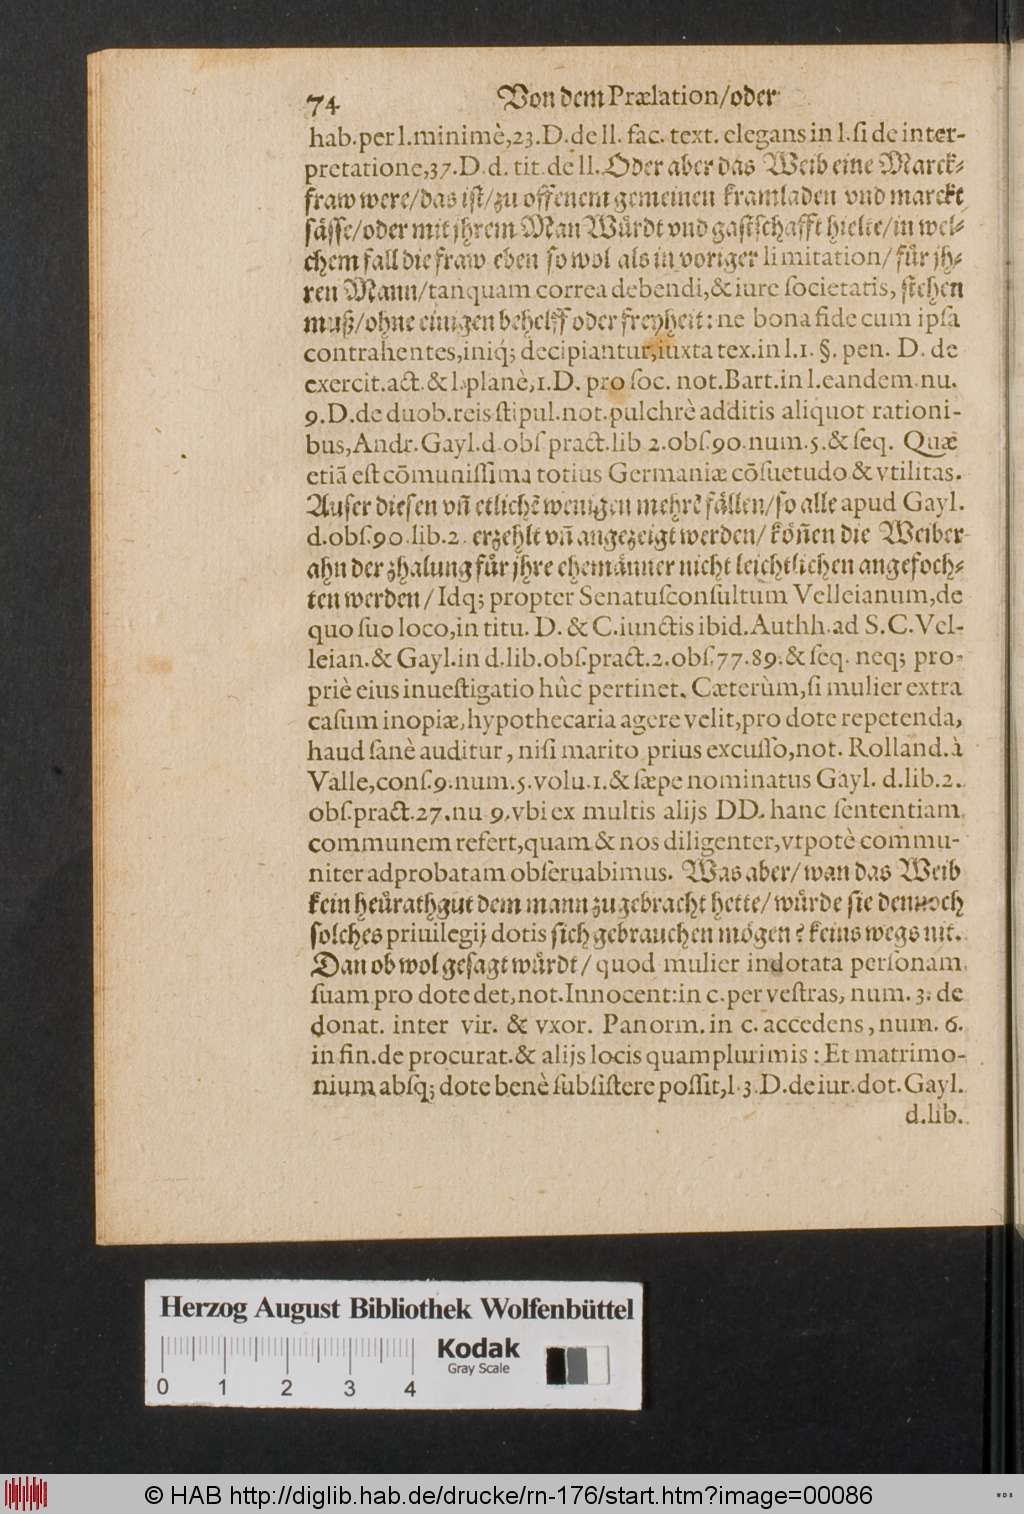 74 Von dem Prælation/oder
hab. per l. minimè, 23. D. de ll. fac. text. elegans in l. si de inter-
pretatione, 37. D. d. tit. de ll. Oder aber das Weib eine Marck-
fraw were/das ist/zu offenem gemeinen kramladen vnd marckt
sässe/oder mit jhrem Man Würdt vnd gastschafft hielte/in wel-
chem fall die fraw eben so wol als in voriger limitation/ für jh-
ren Mann/tanquam correa debendi, & iure societatis, stehen
muß/ohne einigen behelff oder freyheit: ne bona fide cum ipsa
contrahentes, iniq; decipiantur, iuxta tex. in l. 1. §. pen. D. de
exercit. act. & l. planè, 1. D. pro soc. not. Bart. in l. eandem. nu.
9. D. de duob. reis stipul. not. pulchrè additis aliquot rationi-
bus, Andr. Gayl. d. obs pract. lib 2. obs. 90. num. 5. & seq. Quæ
etiã est cõmunissima totius Germaniæ cõsuetudo & vtilitas.
Auser diesen vñ etlichẽ wenigen mehrẽ fällen/so alle apud Gayl.
d. obs. 90. lib. 2. erzehlt vñ angezeigt werden/ köñen die Weiber
ahn der zhalung für jhre ehemänner nicht leichtlichen angefoch-
ten werden/ Idq; propter Senatusconsultum Velleianum, de
quo suo loco, in titu. D. & C. iunctis ibid. Authh. ad S. C. Vel-
leian. & Gayl. in d. lib. obs. pract. 2. obs. 77. 89. & seq. neq; pro-
priè eius inuestigatio hûc pertinet. Cæterùm, si mulier extra
casum inopiæ, hypothecaria agere velit, pro dote repetenda,
haud sanè auditur, nisi marito prius excusso, not. Rolland. à
Valle, cons. 9. num. 5. volu. 1. & sæpe nominatus Gayl. d. lib. 2.
obs. pract. 27. nu 9. vbi ex multis alijs DD. hanc sententiam
communem refert, quam & nos diligenter, vtpotè commu-
niter adprobatam obseruabimus. Was aber/ wan das Weib
kein heürathgut dem mann zugebracht hette/ würde sie dennoch
solches priuilegij dotis sich gebrauchen mögen? keins wegs nit.
Dan ob wol gesagt würdt/ quod mulier indotata personam
suam pro dote det, not. Innocent: in c. per vestras, num. 3. de
donat. inter vir. & vxor. Panorm. in c. accedens, num. 6.
in fin. de procurat. & alijs locis quamplurimis: Et matrimo-
nium absq; dote benè subsistere possit, l. 3. D. de iur. dot. Gayl.
d. lib.
Herzog August Bibliothek Wolfenbüttel
Kodak
Gray Scale
0 1 2 3 4
© HAB http://diglib.hab.de/drucke/rn-176/start.htm?image=00086